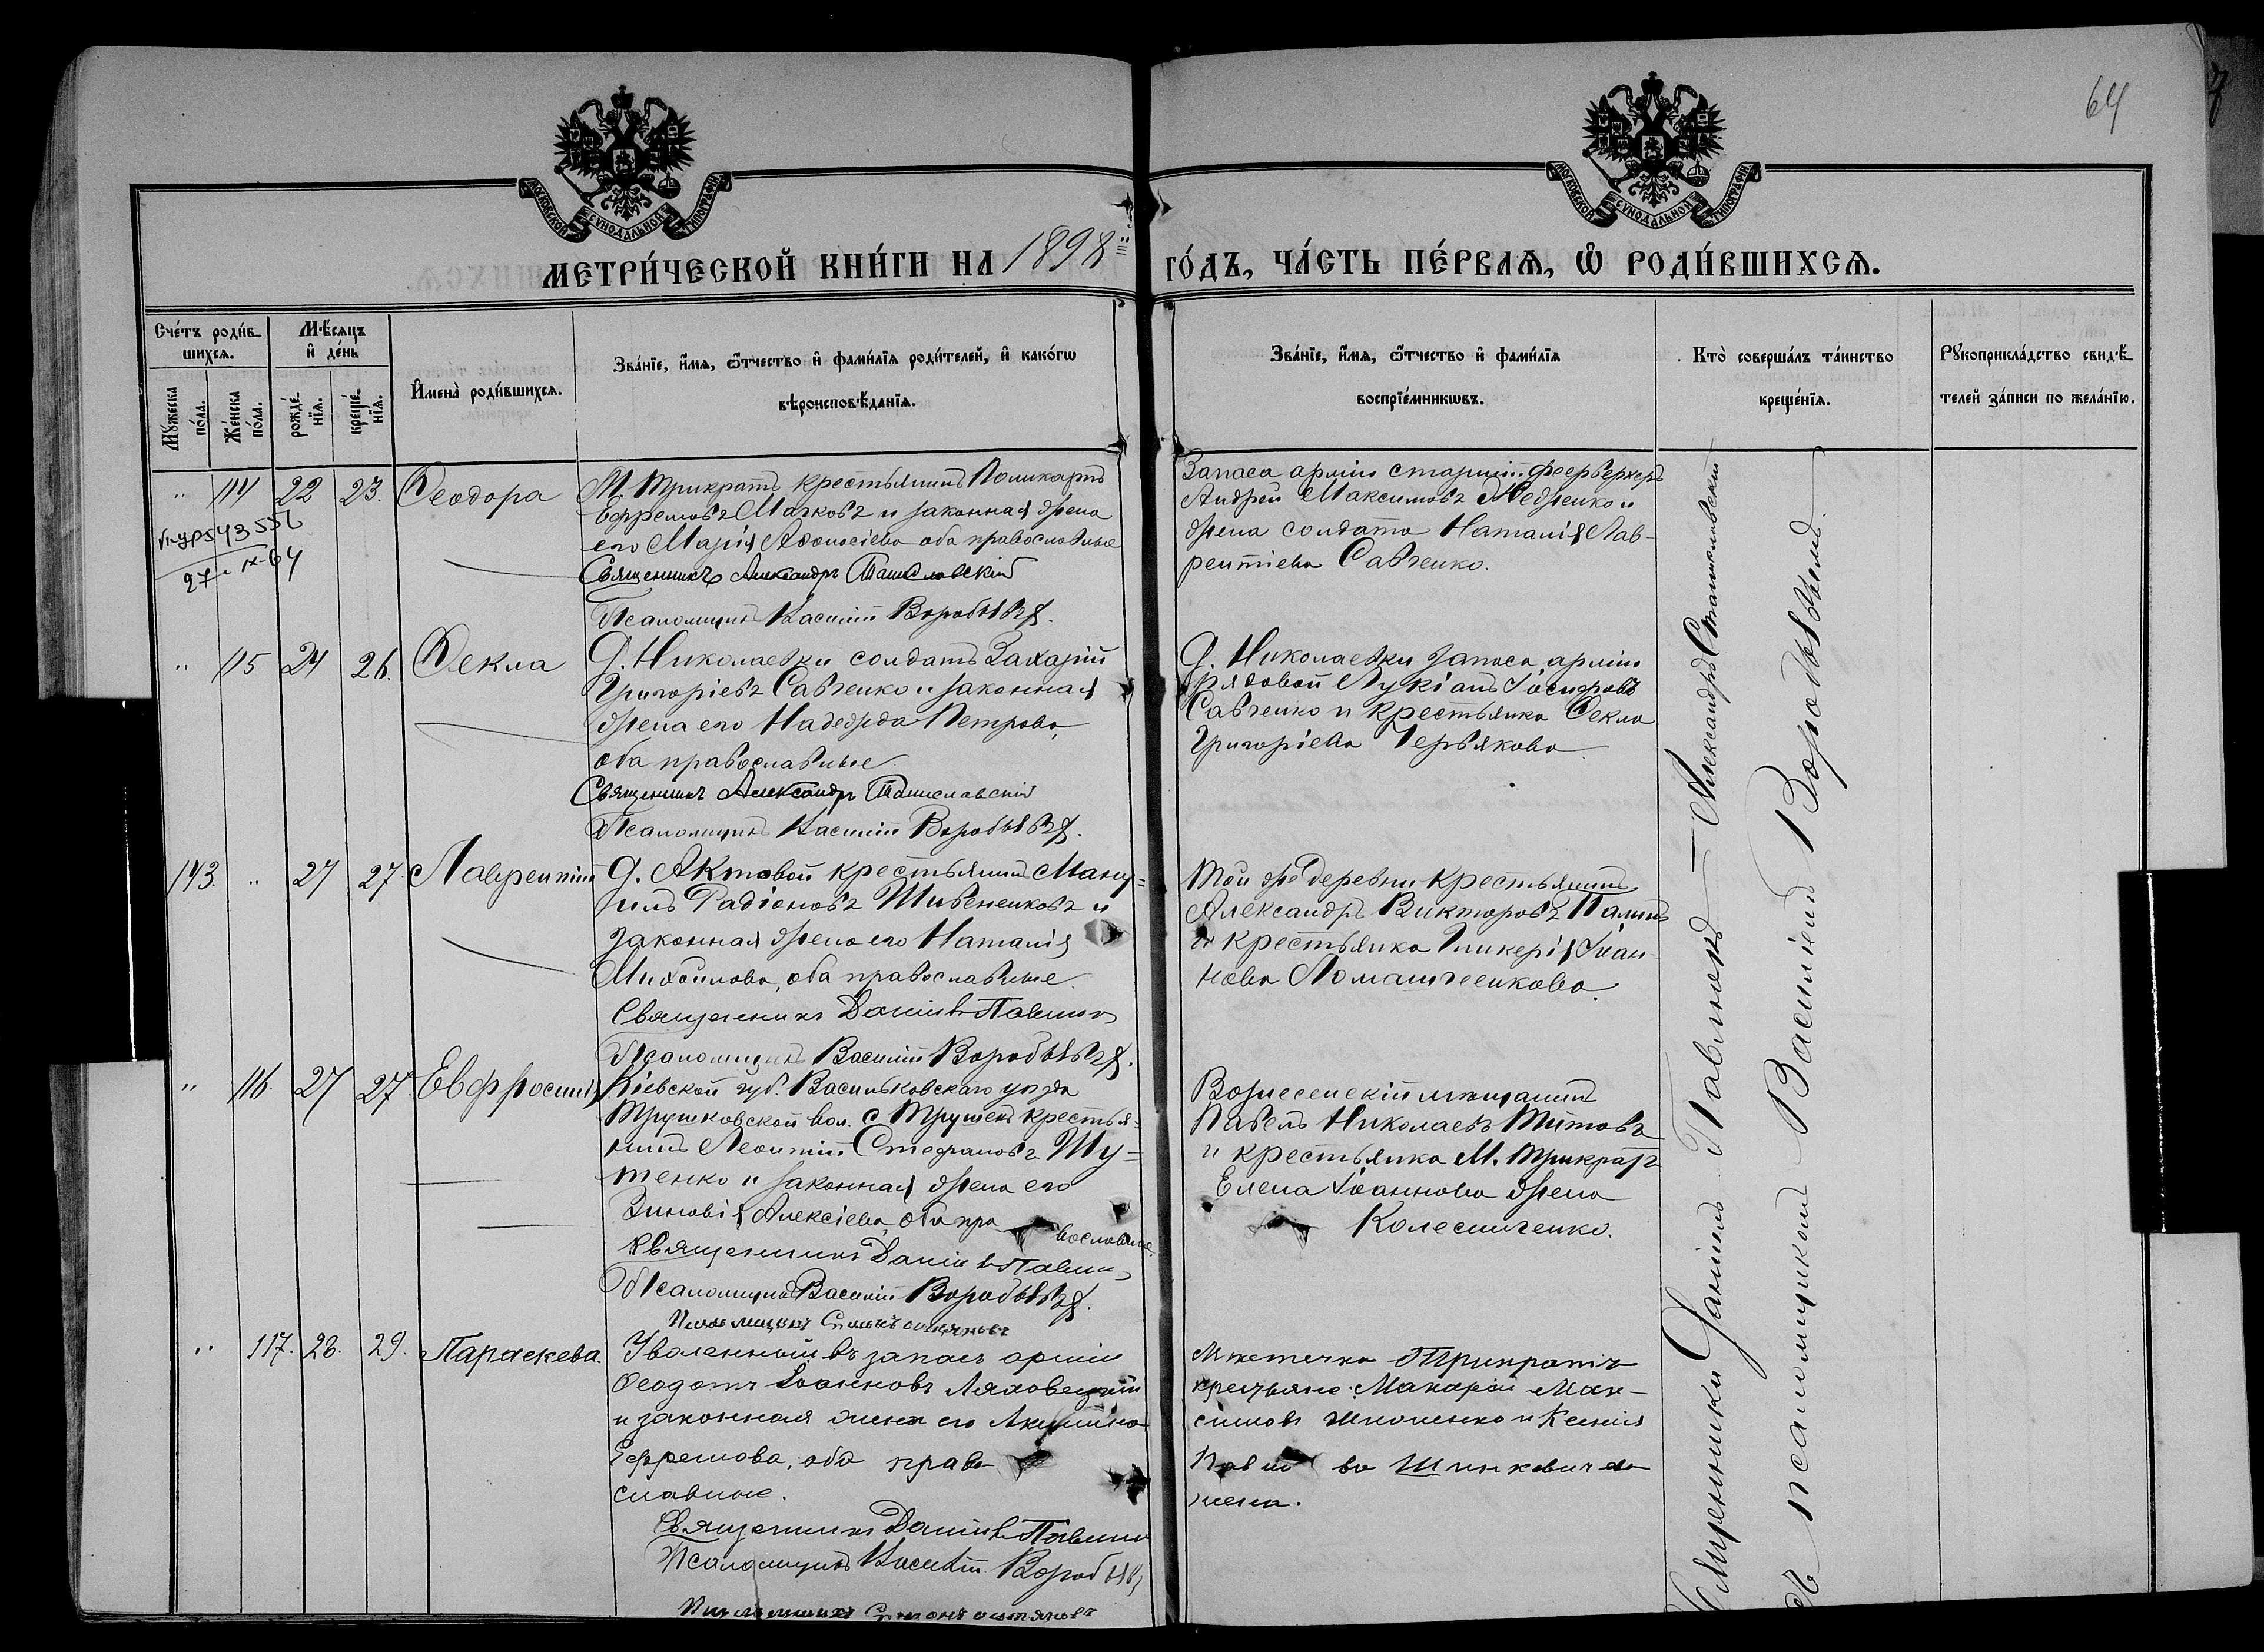 64
МОСКОВСКОЙ СУНОДАЛЬНОЙ ТИПОГРАФІИ
МОСКОВСКОЙ СУНОДАЛЬНОЙ ТИПОГРАФІИ
МЕТРИ́ЧЕСКОЙ КНИ́ГИ НА 1898 ГО́ДЪ, ЧА́СТЬ ПЕ́РВАѦ, Ѽ РОДИ́ВШИХСѦ.
Сче́тъ роди́в-
шихсѧ.
Мꙋжеска по́ла.
Же́нска по́ла.
Мѣ́сѧцъ
и҆ де́нь
рожде́нїѧ.
креще́нїѧ.
И҆мена̀ роди́вшихсѧ.
Зва́нїе, и҆́мѧ, ѻ҆́тчество и҆ фами́лїѧ роди́телей, и҆ како́гѡ
вѣроисповѣ́данїѧ.
Зва́нїе, и҆́мѧ, ѻ҆́тчество и҆ фами́лїѧ
воспрїе́мникѡвъ.
Кто̀ соверша́лъ та́инство
креще́нїѧ.
Рꙋкоприкла́дство свидѣ́-
телей за́писи по жела́нїю.
" 114 22 23. Ѳеодора
М. Трикратъ крестьянинъ Поликарпъ
Ефремовъ Мачковъ и законная жена
его Марія Аѳонасіева оба православные
Священникъ Александръ Станиславскій
Псаломщикъ Василій Воробьевъ
27-IX-64
Запаса арміи старшій фееръеркеръ
Андрей Максимовъ Недženко и
жена солдата Наталія Лав-
рентіева Савченко.
" 115 24 26. Ѳекла
Д. Николаевки солдатъ Захарій
Григоріевъ Савченко и законная
жена его Надежда Петрова,
оба православные
Священникъ Александръ Станиславскій
Псаломщикъ Василій Воробьевъ
Д. Николаевки запаса арміи
рядовой Лукіанъ Іосифовъ
Савченко и крестьянка Ѳекла
Григоріева Червякова
143. " 27 27. Лаврентій
Д. Актовой крестьянинъ Ману=
илъ Радіоновъ Шивененковъ и
законная жена его Наталія
Михайлова, оба православные.
Священникъ Даніилъ Павлюкъ
Псаломщикъ Василій Воробьевъ
Той же деревни крестьянинъ
Александръ Викторовъ Палій
и крестьянка Гликерія Іоан-
нова Ломашченкова.
" 116. 27 27. Евфросинія
Кіевской губ. Васильковскаго уѣзда
Трушковской вол. с. Трушекъ крестья-
нинъ Леонтій Стефановъ Шу=
тенко и законная жена его
Зиновія Алексіева, оба православные.
Священникъ Даніилъ Павлюкъ
Псаломщикъ Василій Воробьевъ
Вознесенскій мѣщанинъ
Павелъ Николаевъ Титовъ
и крестьянка М. Трикратъ
Елена Іоаннова жена
Колесниченко.
" 117. 28. 29. Параскева.
Уволенный въ запасъ арміи
Ѳеодотъ Іоанновъ Ляховецкій
и законная жена его Акилина
Ефремова, оба право-
славные.
Священникъ Даніилъ Павлюкъ
Псаломщикъ Василій Воробьевъ
Мѣстечка Трикратъ
крестьяне: Макарій Мак-
симовъ и Ксенія
Павлова Шинкевичева
жена.
Священники Даніилъ Павлюкъ – Александръ Станиславскій
съ псаломщикомъ Василіемъ Воробьевымъ